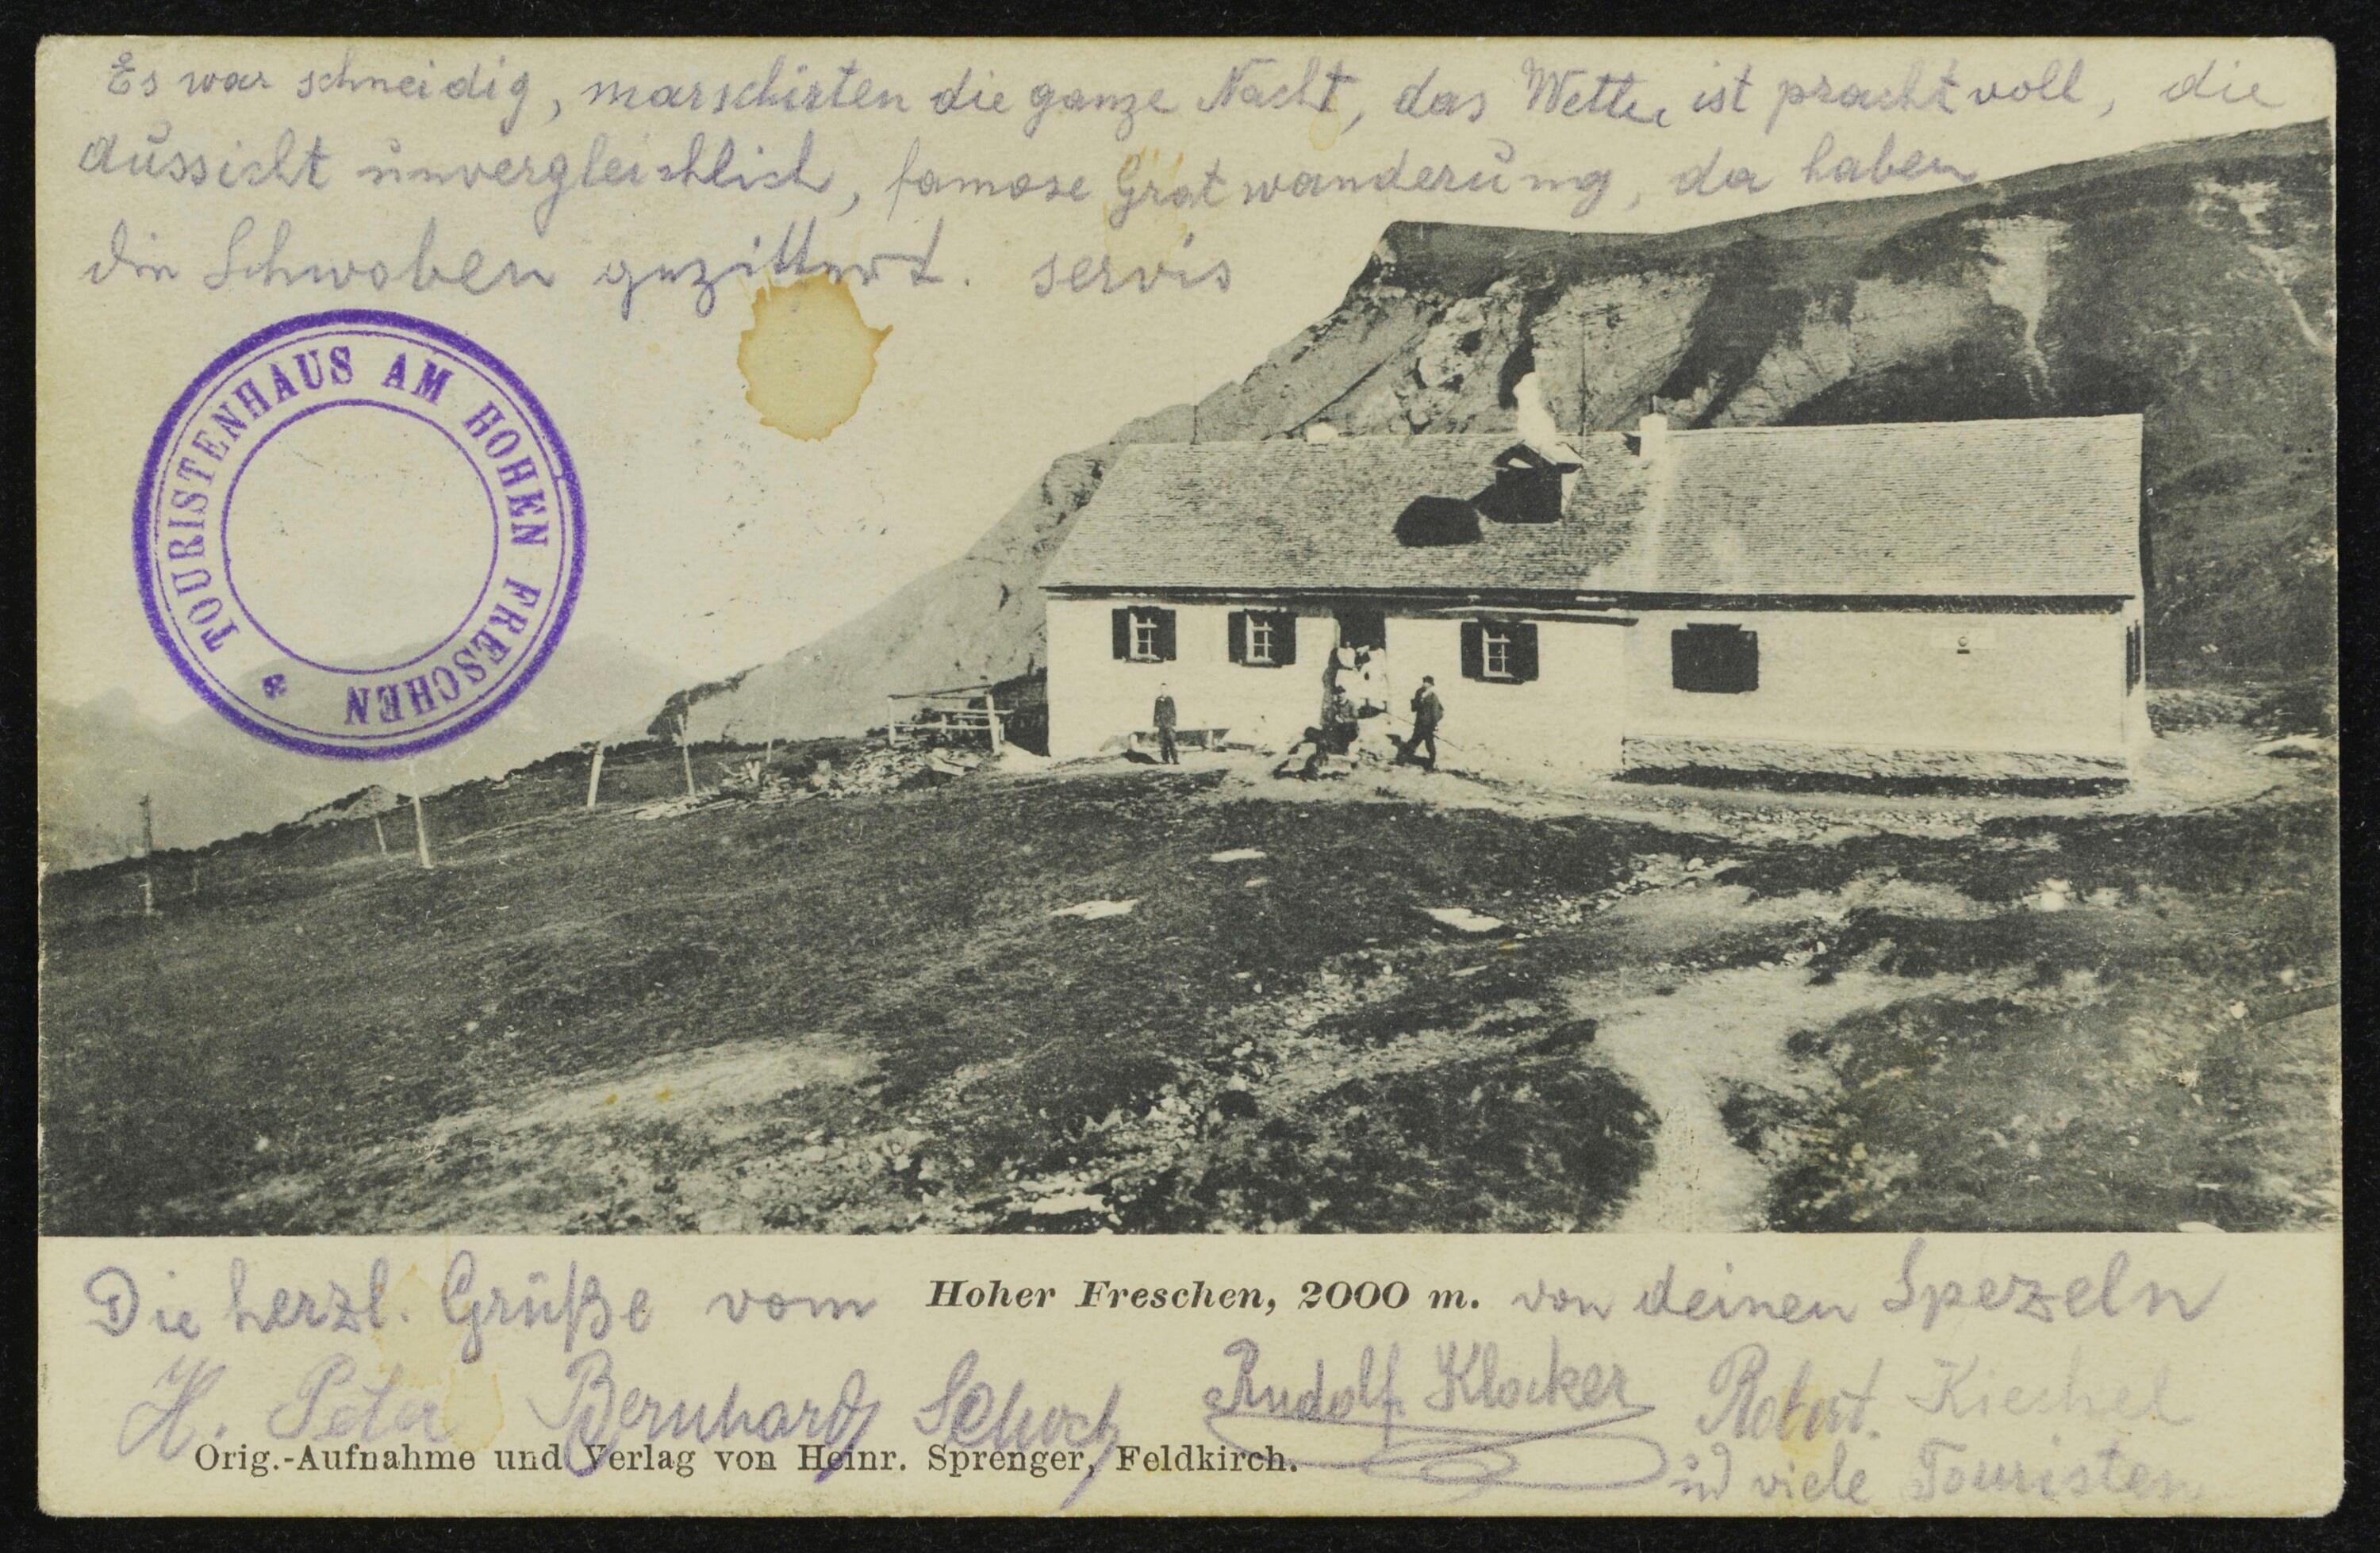 Es war schneidig, marschirten die ganze Nacht, das Wetter ist prachtvoll, die
Aussicht unvergleichlich, famose Gratwanderung, da haben
die Schwoben gezittert. servis
TOURISTENHAUS AM HOHEN FRESCHEN
Die herzl. Grüße vom Hoher Freschen, 2000 m. von deinen Spezeln
H. Peter Bernhard Schoch Rudolf Klocker Robert. Kiechel
Orig.-Aufnahme und Verlag von Heinr. Sprenger, Feldkirch.
ud viele Touristen